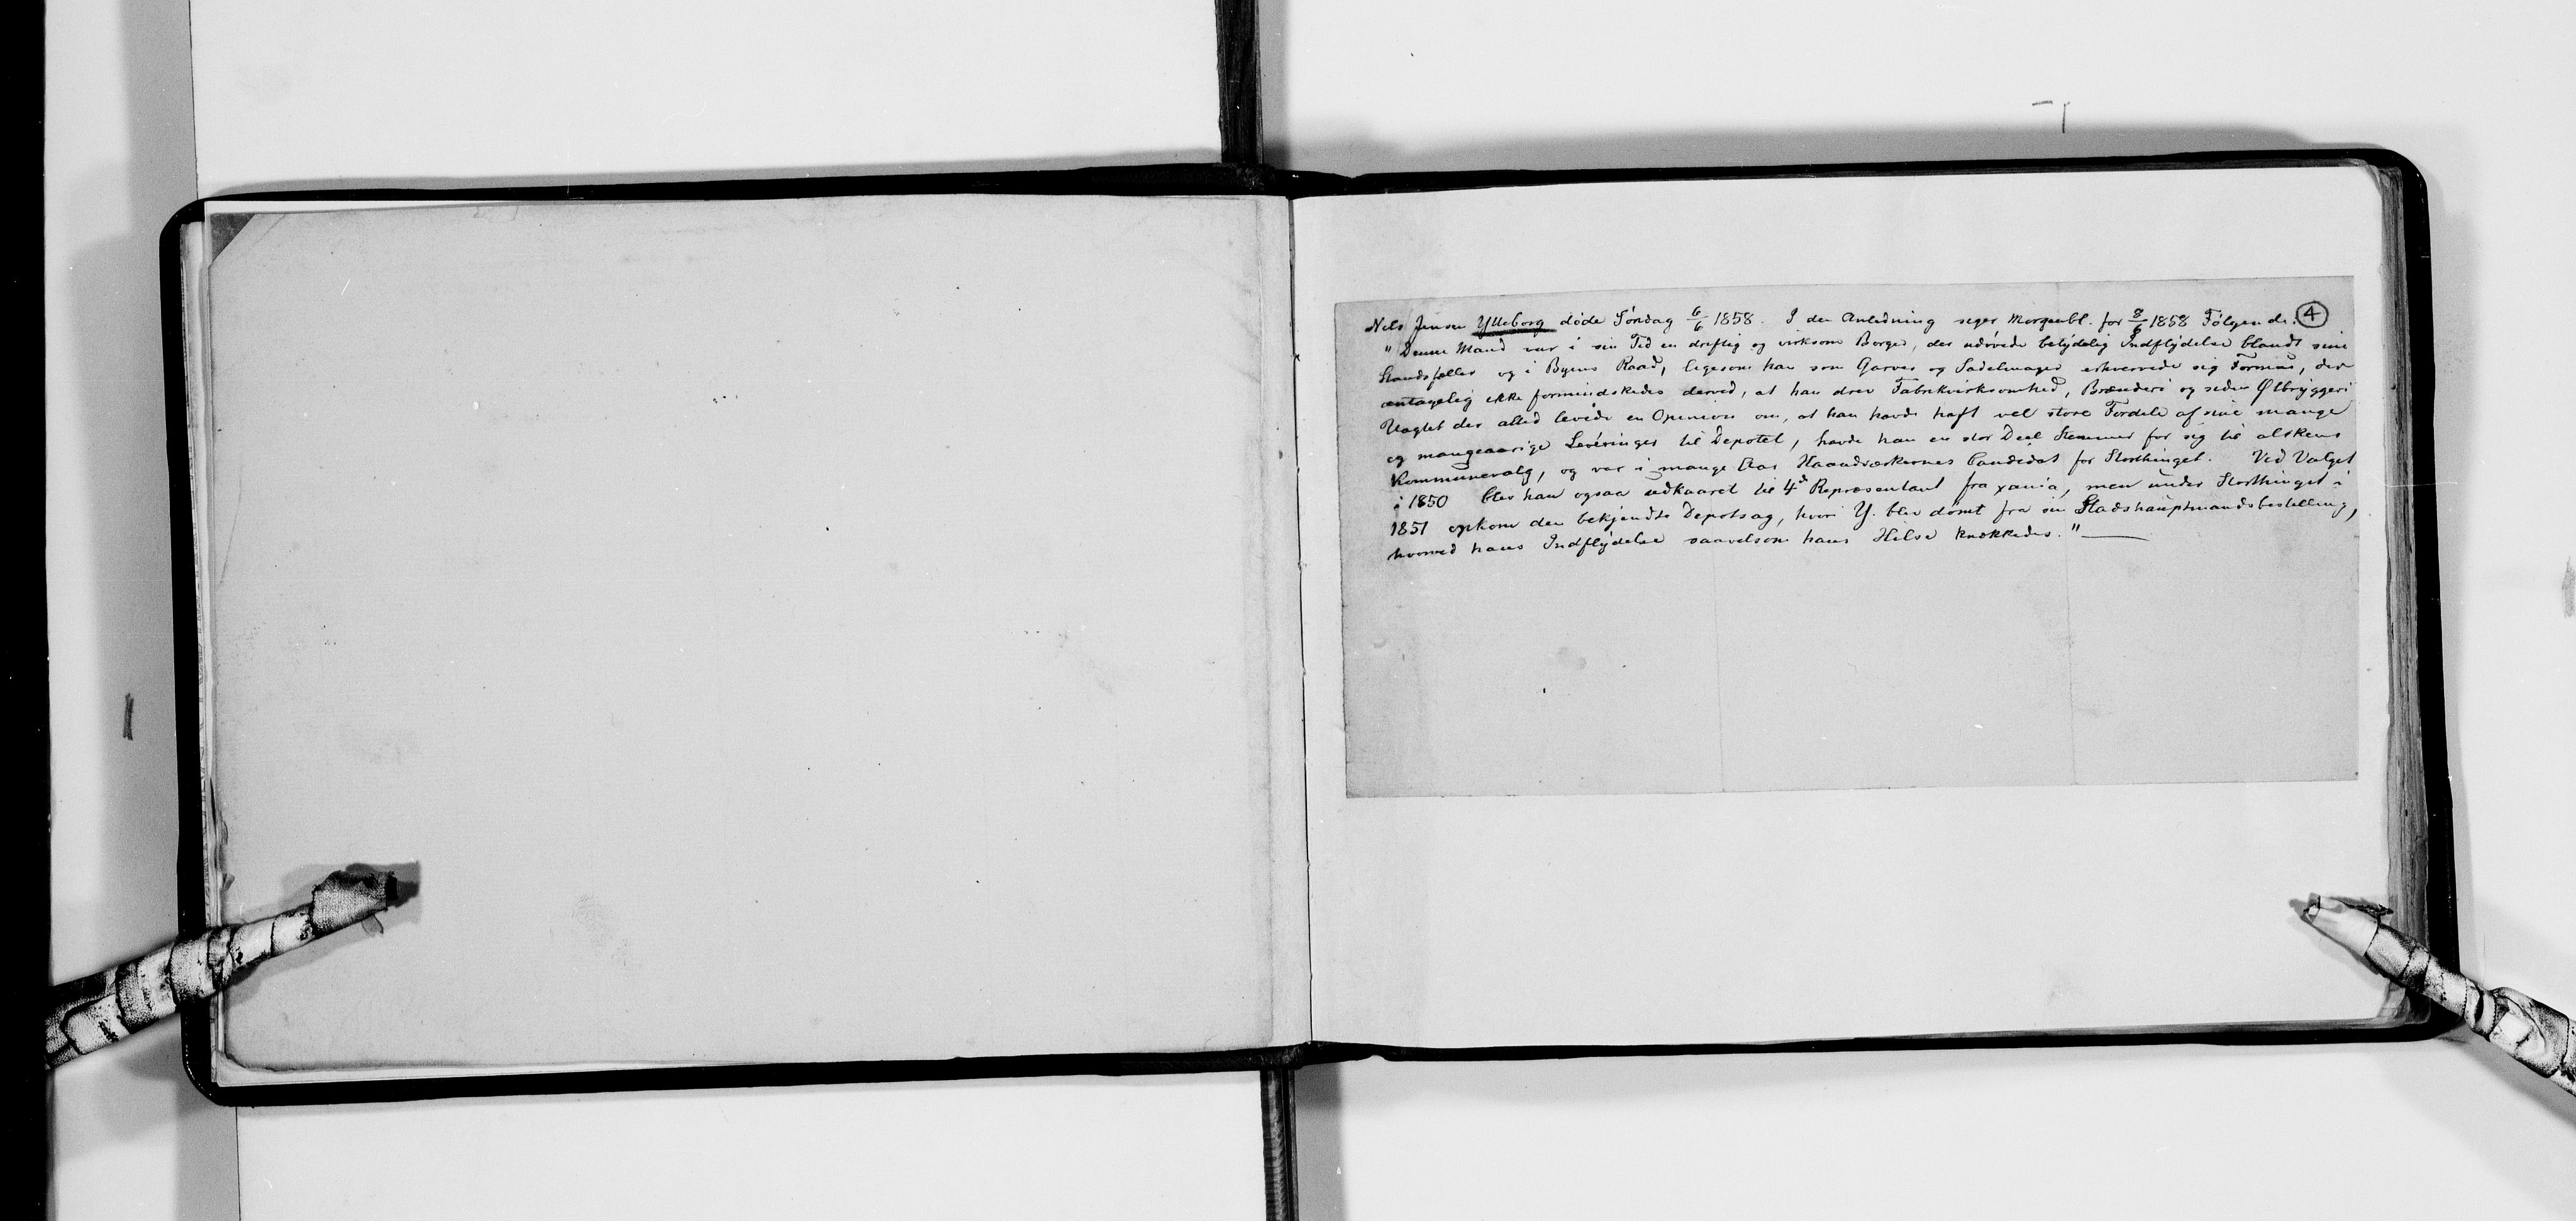 Nels Jensen Ylleborg døde Søndag 6/6 1858. I den Anledning siger Morgenbl. for 8/6 1858 Følgende: ④
"Denne Mand var i sin Tid en driftig og virksom Borger, der udøvede betydelig Indflydelse blandt sine
Standsfæller og i Byens Raad, ligesom han som Garver og Sadelmager erhvervede sig Formue, der
antagelig ikke formindskedes derved, at han drev Fabrikvirksomhed, Brænderi og siden Ølbryggeri
Uagtet der altid levede en Opinion om, at han havde haft vel store Fordele af sine mange
og mangeaarige Leveringer til Depotet, havde han en stor Deel Stemmer for sig til alskens
Kommunevalg, og var i mange Aar Haandværkernes Candidat for Storthinget. Ved Valget
i 1850 blev han ogsaa udkaaret til 4de Repræsentant fra Xania, men under Storthinget i
1851 opkom den bekjendte Depotsag, hvori Y. blev dømt fra sin Stadshauptmandsbestilling,
hvorved hans Indflydelse saavelsom hans Helse knækkedes." —